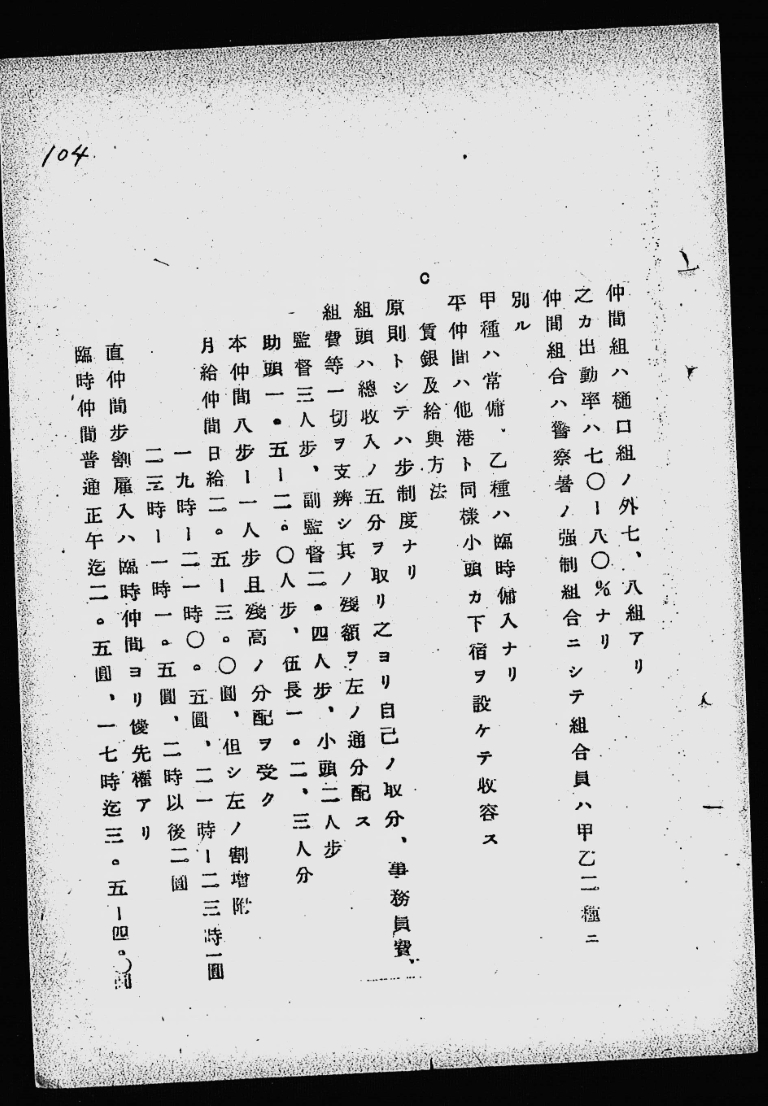 104.
仲間組ハ樋口組ノ外七、八組アリ
之カ出動率ハ七〇ー八〇%ナリ
仲間組合ハ警察署ノ強制組合ニシテ組合員ハ甲乙二種ニ
別ル
甲種ハ常傭、乙種ハ臨時傭入ナリ
平仲間ハ他港ト同様小頭カ下宿ヲ設ケテ收容ス
C 賃銀及給與方法
原則トシテハ步制度ナリ
組頭ハ總收入ノ五分ヲ取リ之ヨリ自己ノ取分、事務員費、
組費等一切ヲ支辨シ其ノ殘額ヲ左ノ通分配ス
監督三人步、副監督二。四人步、小頭二人步
助頭一。五ー二。〇人步、伍長一。二、三人分
本仲間八步ー一人步且殘高ノ分配ヲ受ク
月給仲間日給二。五ー三。〇圓、但シ左ノ割增附
一九時ー二一時〇。五圓、二一時ー二三時一圓
二三時ー一時一。五圓、二時以後二圓
直仲間步割雇入ハ臨時仲間ヨリ優先權アリ
臨時仲間普通正午迄二。五圓、一七時迄三。五ー四。〇圓